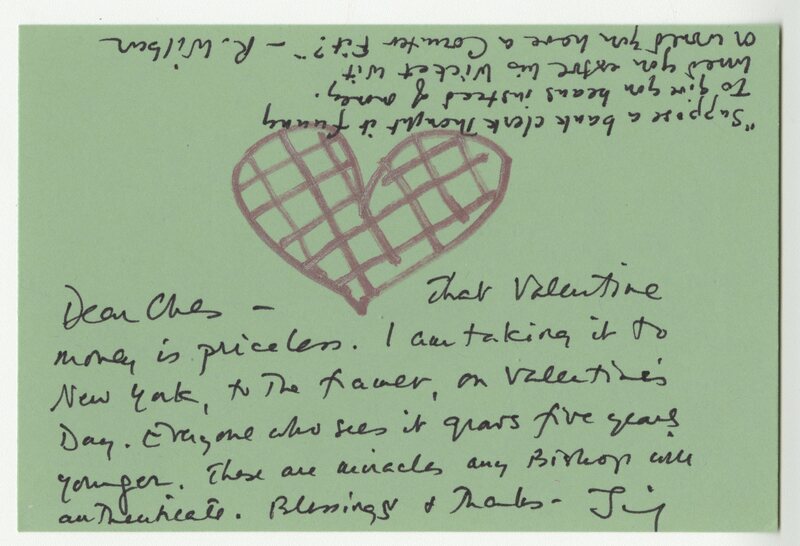 "Suppose a bank clerk thought it funny
To give you beans instead of money.
Would you extol his Wicket Wit
Or would you have a Counter Fit?" – R. Wilbur
Dear Ches – That Valentine
money is priceless. I am taking it to
New York, to The framer, on Valentine's
Day. Everyone who sees it grows five years
younger. These are miracles any Bishop will
authenticate. Blessings & Thanks –